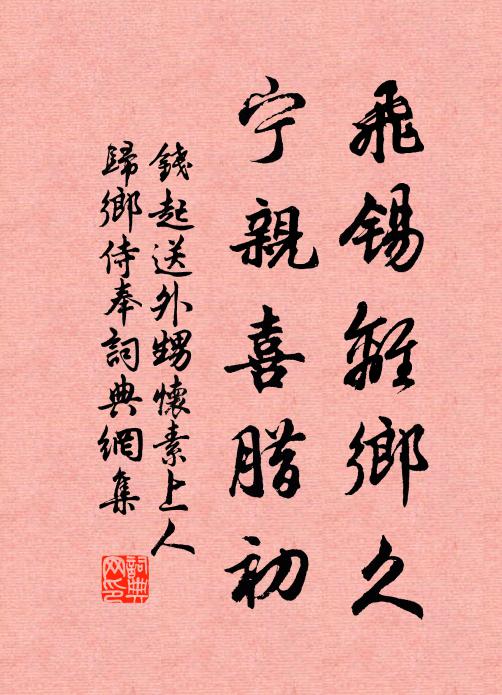 飛錫離鄉久
宁親喜腊初
錢起送外甥懷素上人
歸鄉侍奉詞典網集
詞典网印